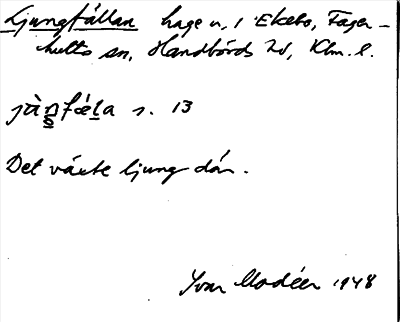 Ljungfällan hage u, i Ekebo, Fager-
hults sn, Handbörds hd, Klm. l.
jùŋfæla s. 13
Det växte ljung där.
Ivar Modéer 1948